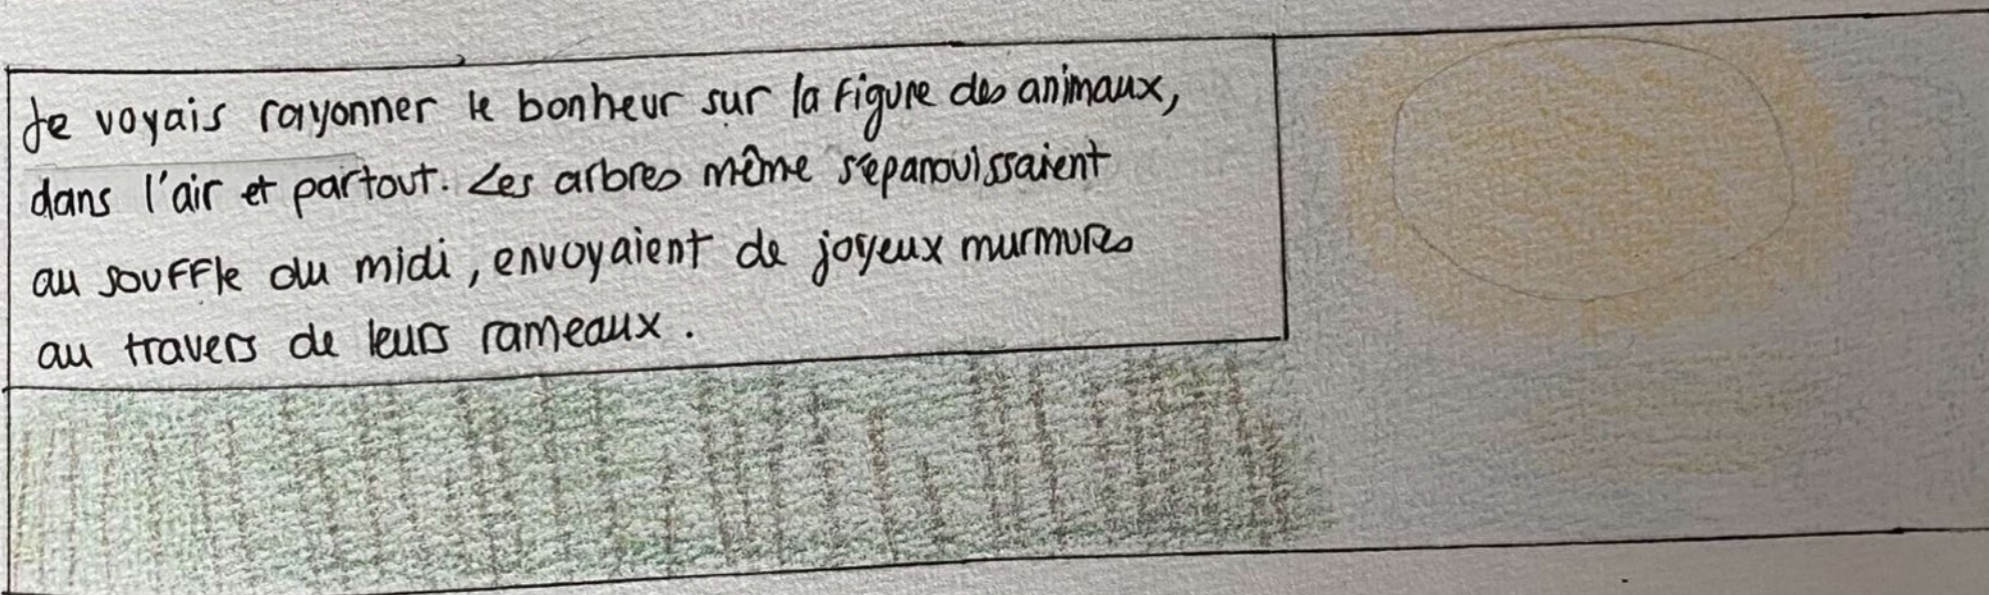 Je voyais rayonner le bonheur sur la figure des animaux,
dans l'air et partout. Les arbres même s'epanouissaient
au souffle du midi, envoyaient de joyeux murmures
au travers de leurs rameaux.